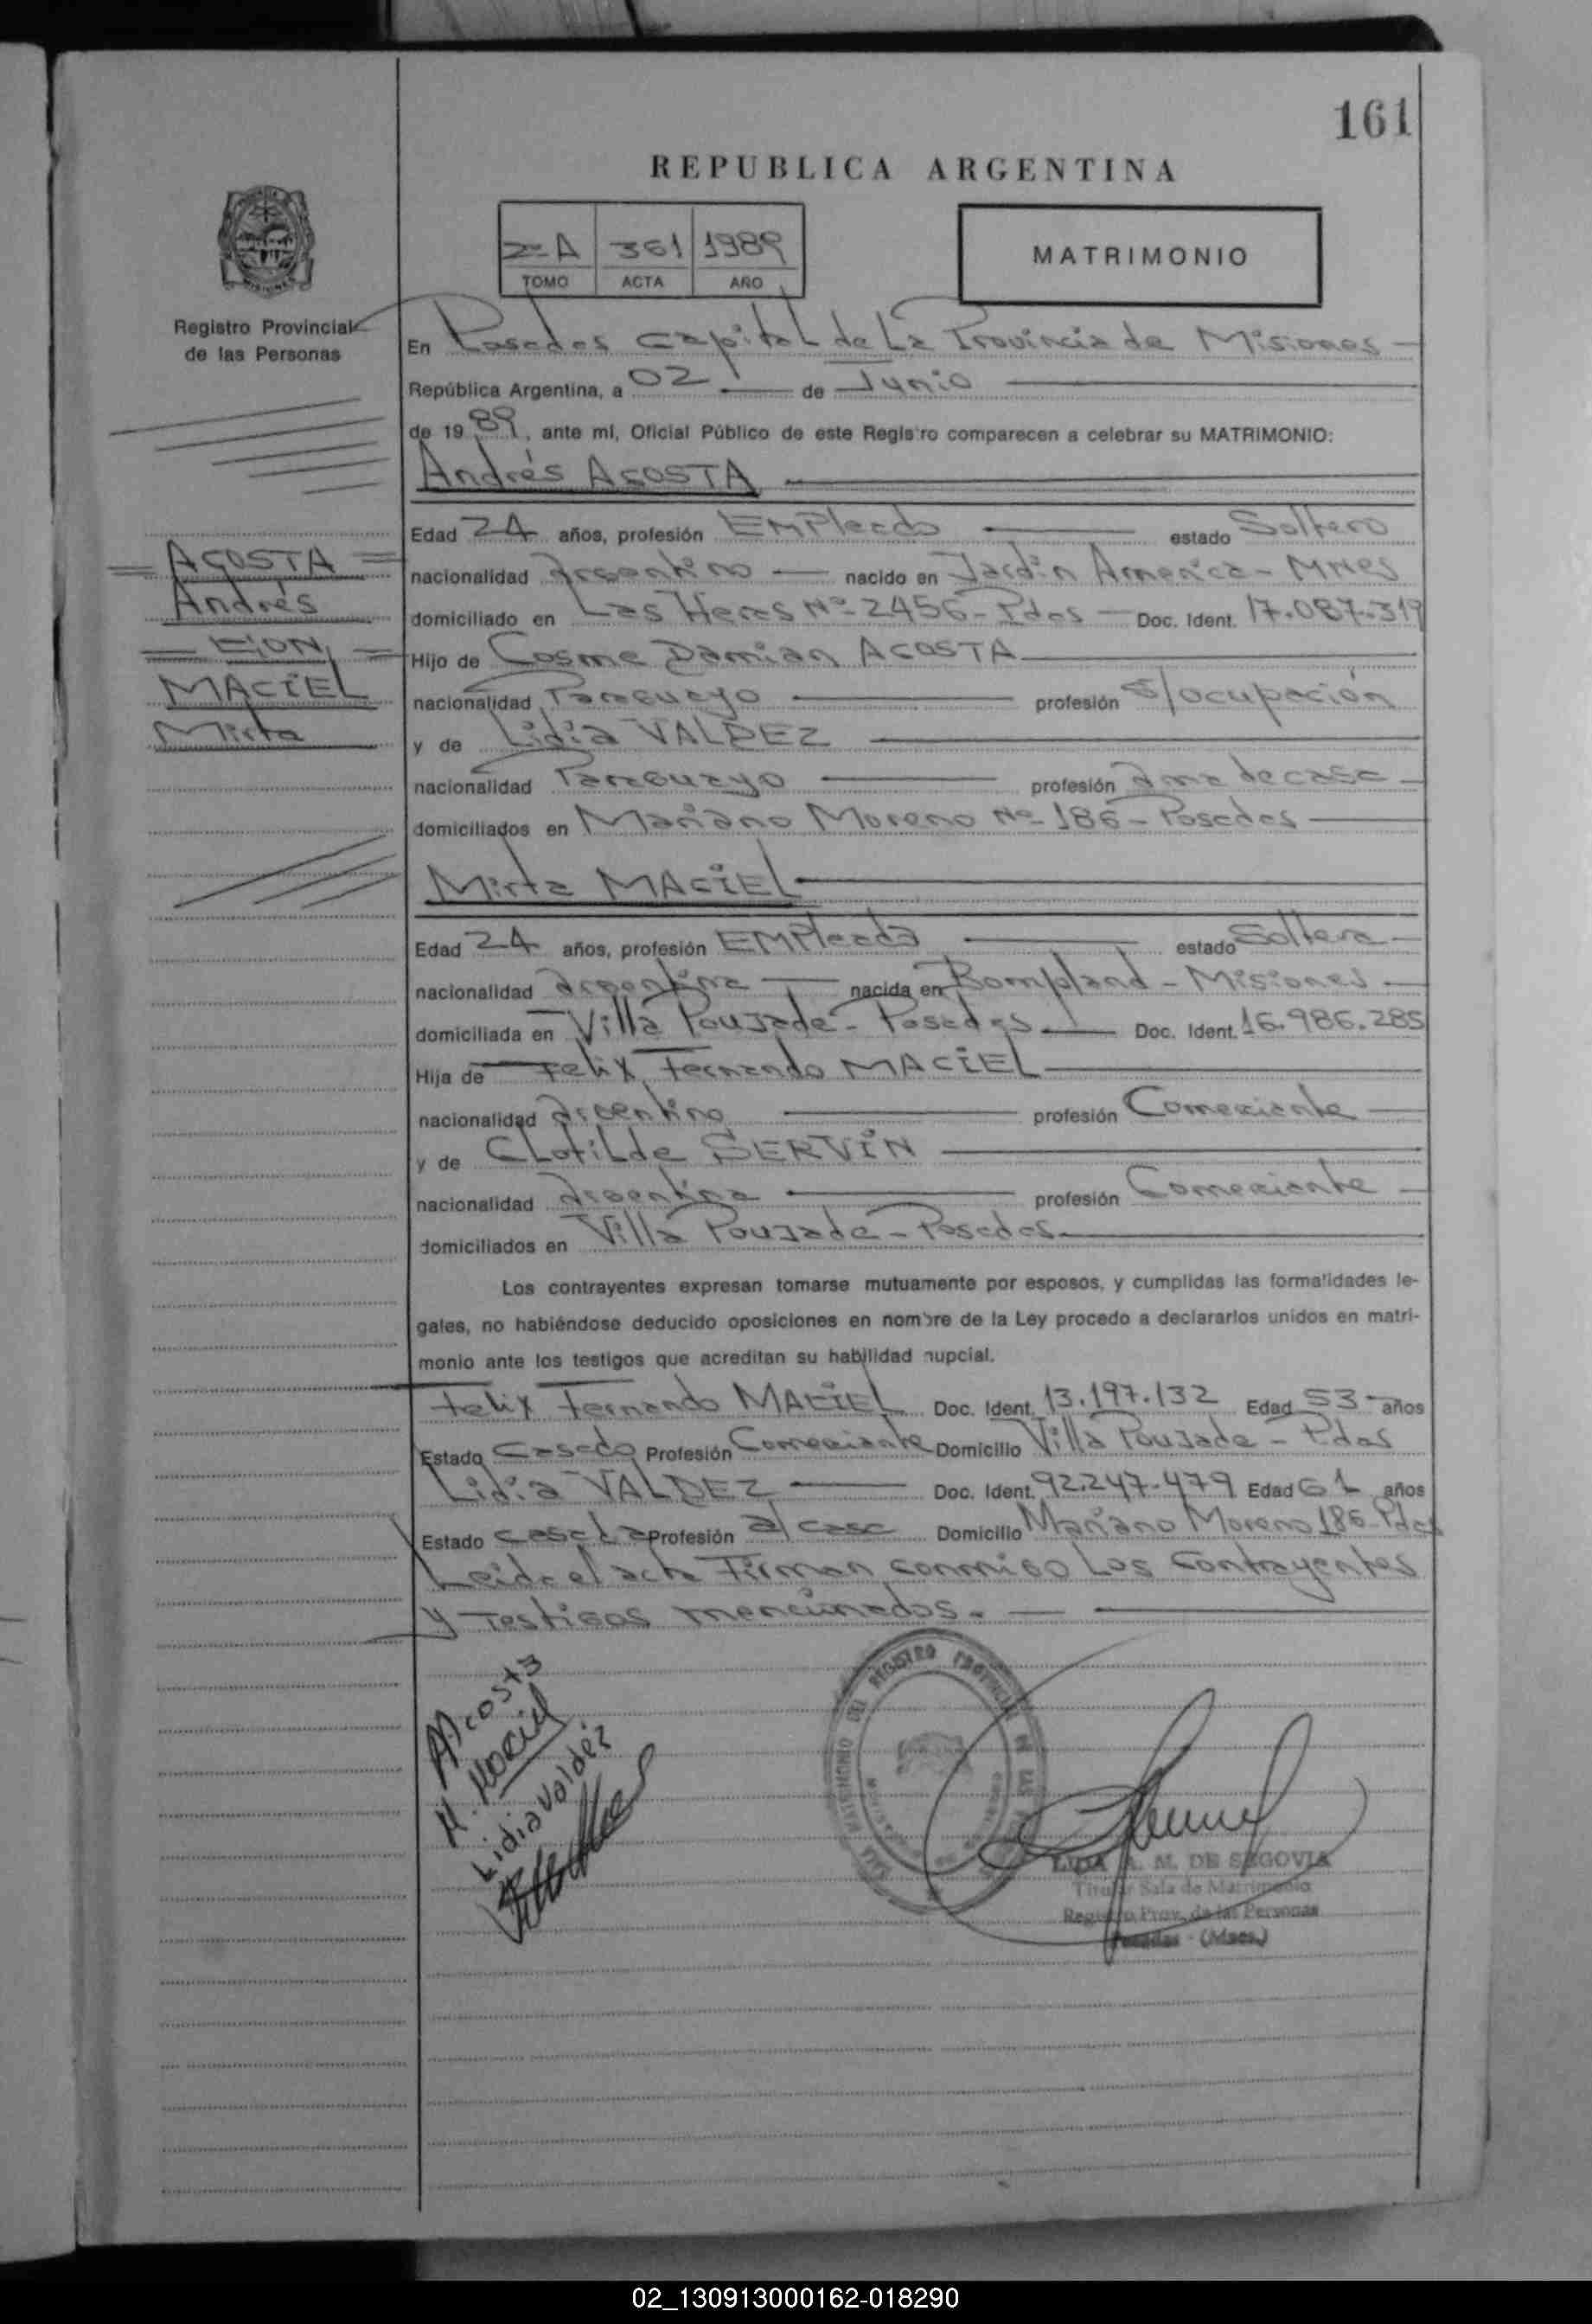 161
REPUBLICA ARGENTINA
2º A 361 1989
TOMO ACTA AÑO
MATRIMONIO
Registro Provincial
de las Personas
En Posadas Capital de La Provincia de Misiones
República Argentina, a 02 de Junio
de 1989, ante mí, Oficial Público de este Registro comparecen a celebrar su MATRIMONIO:
Andrés ACOSTA
Edad 24 años, profesión EMPleado estado Soltero
nacionalidad Argentino nacido en Jardin America - MNes
domiciliado en Las Heras Nº 2456 - Pdas Doc. Ident. 17.087.319
Hijo de Cosme Damian ACOSTA
nacionalidad Paraguayo profesión s/ocupación
y de Lidia VALDEZ
nacionalidad Paraguayo profesión Ama de casa
domiciliados en Mariano Moreno Nº 186 - Posadas
ACOSTA
Andrés
CON
MACIEL
Mirta
Mirta MACIEL
Edad 24 años, profesión EMPleada estado Soltera
nacionalidad Argentina nacida en Bompland - Misiones
domiciliada en Villa Poujade - Posadas Doc. Ident. 16.986.285
Hija de Felix Fernando MACIEL
nacionalidad Argentino profesión Comerciante
y de CLotiLde SERVIN
nacionalidad Argentina profesión Comerciante
domiciliados en Villa Poujade - Posadas
Los contrayentes expresan tomarse mutuamente por esposos, y cumplidas las formalidades le-
gales, no habiéndose deducido oposiciones en nombre de la Ley procedo a declararlos unidos en matri-
monio ante los testigos que acreditan su habilidad nupcial.
Felix Fernando MACIEL Doc. Ident. 13.197.132 Edad 53 años
Estado Casado Profesión Comerciante Domicilio Villa Poujade - Pdas
Lidia VALDEZ Doc. Ident. 92.247.479 Edad 61 años
Estado casada Profesión a/casa Domicilio Mariano Moreno 186 Pdas
Leida el acta Firman conmigo Los Contrayentes
y Testigos mencionados.
A Acosta
M. Maciel
Lidia Valdéz
LIDIA A. M. DE SEGOVIA
Titular Sala de Matrimonio
Registro Prov. de las Personas
Posadas - (Mnes.)
02_130913000162-018290